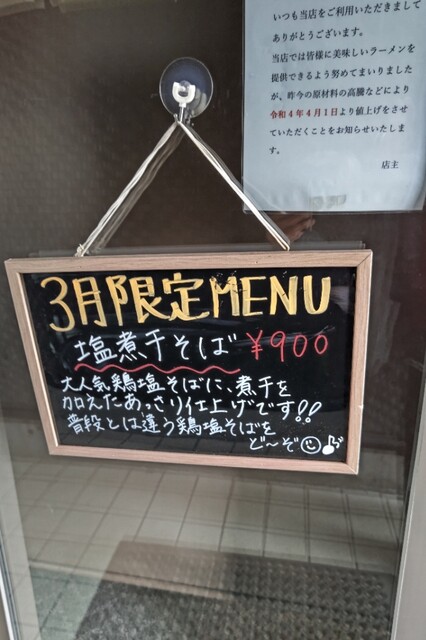 いつも当店をご利用いただきまして
ありがとうございます。
当店では皆様に美味しいラーメンを
提供できるよう努めてまいりました
が、昨今の原材料の高騰などにより
令和4年4月1日より値上げをさせ
ていただくことをお知らせいたしま
す。
店主
3月限定MENU
塩煮干そば ¥900
大人気鶏塩そばに、煮干を
加えたあっさり仕上げです!!
普段とは違う鶏塩そばを
ど〜ぞ